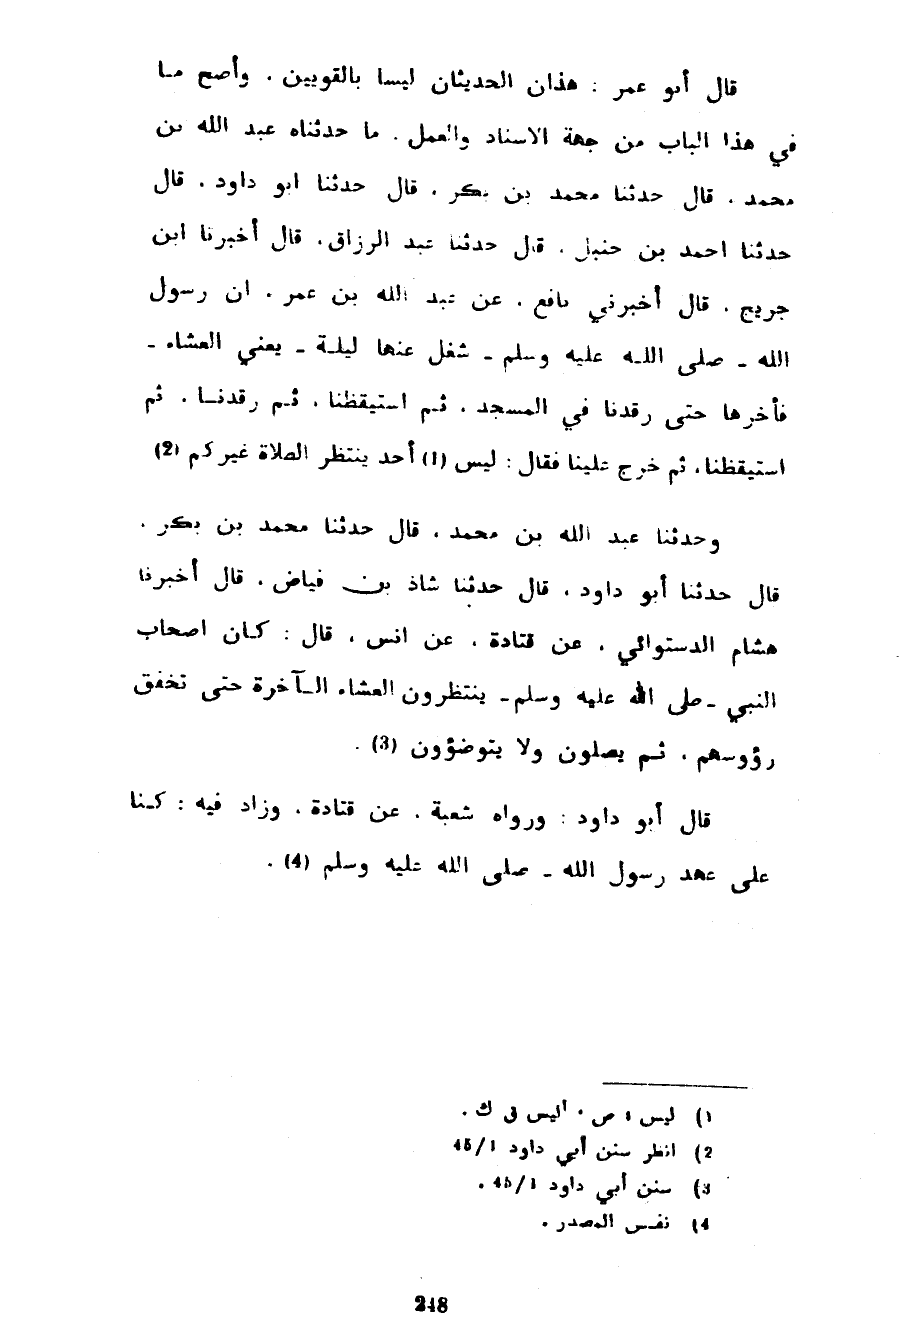 قال أبو عمر : هذان الحديثان ليسا بالقويين . وأصح مـا
في هذا الباب من جهة الاسناد والعمل . ما حدثناه عبد الله بن
محمد . قال حدثنا محمد بن بكر . قال حدثنا ابو داود . قال
حدثنا احمد بن حنبل . قال حدثنا عبد الرزاق . قال أخبرنا ابن
جريج . قال أخبرني نافع . عن عبد الله بن عمر . ان رسول
الله ـ صلى اللـه عليه وسلم ـ شغل عنها ليلـة ـ يعني العشاء ـ
فأخرها حتى رقدنا في المسجد . ثـم استيقظنا . ثـم رقدنـا . ثم
استيقظنا . ثم خرج علينا فقال : ليس (1) أحد ينتظر الصلاة غيركم (2)
وحدثنا عبد الله بن محمد . قال حدثنا محمد بن بكر .
قال حدثنا أبو داود . قال حدثنا شاذ بن فياض . قال أخبرنا
هشام الدستوائي . عن قتادة . عن انس . قال : كـان اصحاب
النبي ـ صلى الله عليه وسلم ـ ينتظرون العشاء الـآخرة حتى تخفق
رؤوسهم . ثـم يصلون ولا يتوضؤون (3) .
قال أبو داود : ورواه شعبة . عن قتادة . وزاد فيه : كـنا
على عهد رسول الله ـ صلى الله عليه وسلم (4) .
1) ليس : ص . أليس في ك .
2) انظر سنن أبي داود 45/1
3) سنن أبي داود 45/1 .
4) نفـس المصدر .
248